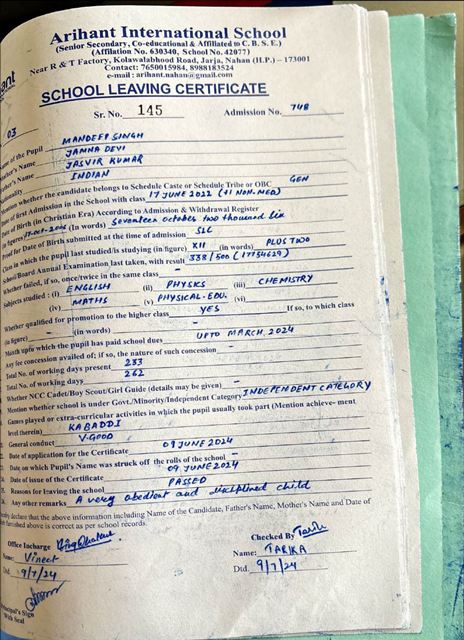 Arihant International School
(Senior Secondary, Co-educational & Affiliated to C. B. S. E.)
(Affilation No. 630340, School No. 42077)
Near R & T Factory, Kowalabhood Road, Jarja, Nahan (H.P.) – 173001
Contact: 7650015984, 8988183524
e-mail : arihant.nahan@gmail.com
SCHOOL LEAVING CERTIFICATE
Sr. No. 145 Admission No. 748
03
Name of the Pupil MANDEEP SINGH
Mother's Name JAMNA DEVI
Father's Name JASVIR KUMAR
Nationality INDIAN
Mention whether the candidate belongs to Schedule Caste or Schedule Tribe or OBC GEN
Date of first Admission in the School with class 17 JUNE 2022 (+1 NON-MED)
Date of Birth (in Christian Era) According to Admission & Withdrawal Register
(in figures) 17-Oct-2006 (In words) Seventeen october two thousand six
Proof for Date of Birth submitted at the time of admission SLC
Class in which the pupil last studied/is studying (in figure) XII (in words) PLUS TWO
School/Board Annual Examination last taken, with result 338/500 (17734629)
Whether failed, if so, once/twice in the same class –
Subjects studied : (i) ENGLISH (ii) PHYSICS (iii) CHEMISTRY
(iv) MATHS (v) PHYSICAL-EDU. (vi)
Whether qualified for promotion to the higher class YES If so, to which class
(in figure) – (in words) –
Month upto which the pupil has paid school dues UPTO MARCH, 2024
Any fee concession availed of; if so, the nature of such concession –
Total No. of working days present 233
Total No. of working days 262
Whether NCC Cadet/Boy Scout/Girl Guide (details may be given) –
Mention whether school is under Govt./Minority/Independent Category INDEPENDENT CATEGORY
Games played or extra-curricular activities in which the pupil usually took part (Mention achieve- ment
level therein) KABADDI
General conduct V-GOOD
Date of application for the Certificate 09 JUNE 2024
Date on which Pupil's Name was struck off the rolls of the school –
Date of issue of the Certificate 09 JUNE 2024
Reasons for leaving the school PASSED
Any other remarks A very obedient and disciplined child
hereby declare that the above information including Name of the Candidate, Father's Name, Mother's Name and Date of
furnished above is correct as per school records.
Office Incharge Checked By
Name: Vineet Name: TARIKA
Dtd. 9/7/24 Dtd. 9/7/24
Principal's Sign
With Seal